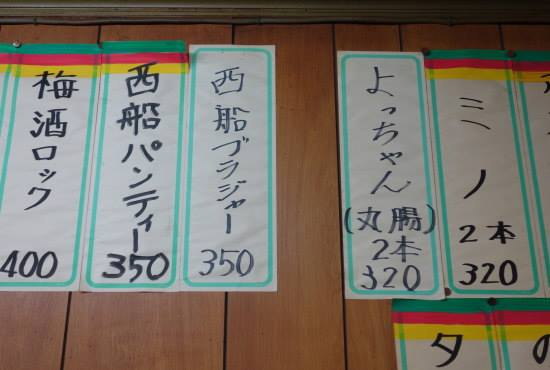 ミノ
2本
320
よっちゃん
(丸腸)
2本
320
西船ブラジャー
350
西船パンティー
350
梅酒ロック
400
タ
の